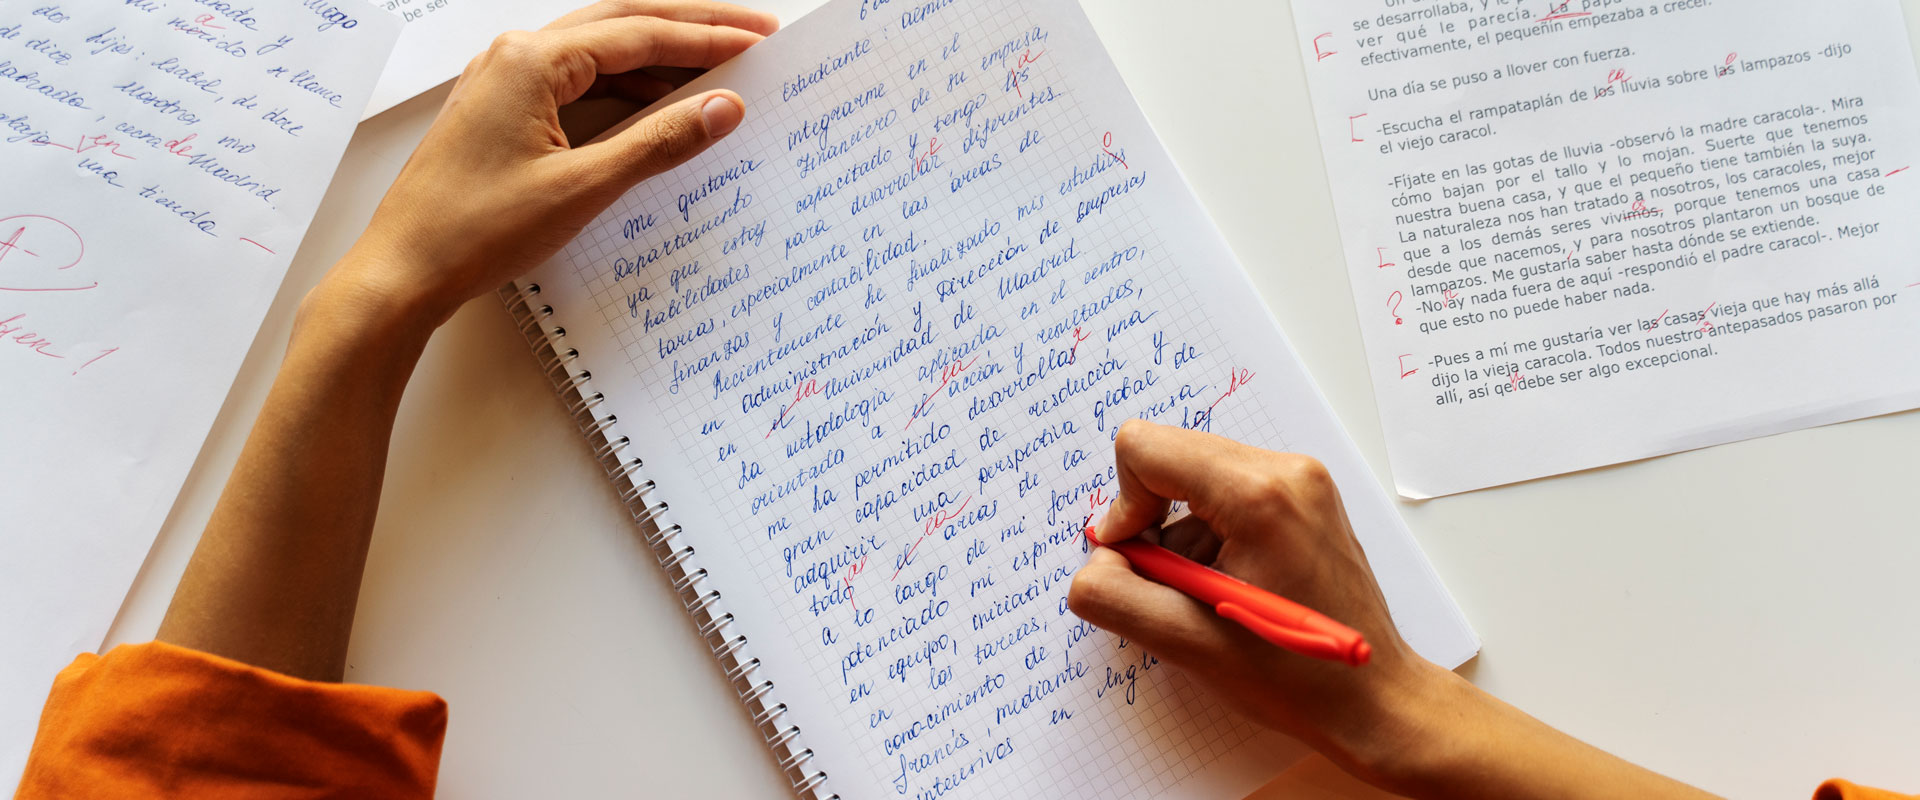 luego
y
mi marido se llama
dos hijes: Isabel, de doce
de diez
Nosotros vivo
cerca de Madrid.
en
una tienda
A-
be ser
Estudiante :
Me gustaria integrarme en el
Departamento Financiero de su empresa,
ya que estoy capacitado y tengo los a
habilidades para desarrovar diferentes
tareas, especialmente en las áreas de
finanzas y contabilidad.
Recientemente he finalizado mis estudios o
en administración y Dirección de empresas
en el la Universidad de Madrid.
La metodología aplicada en el centro,
orientada a el la acción y resultados,
me ha permitido desarrollas r una
gran capacidad de resolución y
adquirir una perspectiva global de
todo as el la areas de la empresa.
a lo largo de mi formac hay he
potenciado mi espiritu u
en equipo, iniciativa
en las tareas,
conocimiento de
francés, mediante
intensivos en
se desarrollaba, y le
ver qué le parecía. La papá
efectivamente, el pequeñín empezaba a crecer.
Una día se puso a llover con fuerza.
-Escucha el rampataplán de los la lluvia sobre las o lampazos -dijo
el viejo caracol.
-Fíjate en las gotas de lluvia -observó la madre caracola-. Mira
cómo bajan por el tallo y lo mojan. Suerte que tenemos
nuestra buena casa, y que el pequeño tiene también la suya.
La naturaleza nos han tratado a nosotros, los caracoles, mejor
que a los demás seres vivimos, porque tenemos una casa
desde que nacemos, y para nosotros plantaron un bosque de
lampazos. Me gustaría saber hasta dónde se extiende.
? -No ay nada fuera de aquí -respondió el padre caracol-. Mejor
que esto no puede haber nada.
-Pues a mí me gustaría ver las casas vieja que hay más allá
dijo la vieja caracola. Todos nuestro antepasados pasaron por
allí, así qe debe ser algo excepcional.